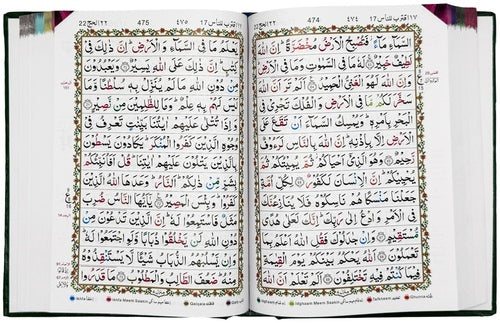 ١٧ اقترب للناس 17 ٤٧٤ 474 الحج ٢٢
السَّمَآءِ مَآءً فَتُصْبِحُ الْاَرْضُ مُخْضَرَّةً ؕ اِنَّ اللّٰهَ
لَطِیْفٌ خَبِیْرٌ ۚ لَهٗ مَا فِی السَّمٰوٰتِ وَمَا فِی الْاَرْضِ ؕ
وَاِنَّ اللّٰهَ لَهُوَ الْغَنِیُّ الْحَمِیْدُ ۠ اَلَمْ تَرَ اَنَّ اللّٰهَ
سَخَّرَ لَكُمْ مَّا فِی الْاَرْضِ وَالْفُلْكَ تَجْرِیْ فِی
الْبَحْرِ بِاَمْرِهٖ ؕ وَیُمْسِكُ السَّمَآءَ اَنْ تَقَعَ عَلَی
الْاَرْضِ اِلَّا بِاِذْنِهٖ ؕ اِنَّ اللّٰهَ بِالنَّاسِ لَرَءُوْفٌ
رَّحِیْمٌ وَهُوَ الَّذِیْۤ اَحْیَاكُمْ ؗ ثُمَّ یُمِیْتُكُمْ ثُمَّ
یُحْیِیْكُمْ ؕ اِنَّ الْاِنْسَانَ لَكَفُوْرٌ لِكُلِّ اُمَّةٍ
جَعَلْنَا مَنْسَكًا هُمْ نَاسِكُوْهُ فَلَا یُنَازِعُنَّكَ
فِی الْاَمْرِ وَادْعُ اِلٰی رَبِّكَ ؕ اِنَّكَ لَعَلٰی هُدًی
مُّسْتَقِیْمٍ وَاِنْ جٰدَلُوْكَ فَقُلِ اللّٰهُ اَعْلَمُ بِمَا
تَعْمَلُوْنَ اَللّٰهُ یَحْكُمُ بَیْنَكُمْ یَوْمَ الْقِیٰمَةِ
فِیْمَا كُنْتُمْ فِیْهِ تَخْتَلِفُوْنَ اَلَمْ تَعْلَمْ اَنَّ اللّٰهَ
Idghaam Meem Saakin Tafkheem Ghunna
اقترب للناس 17 ٤٧٥ 475 الحج ٢٢ 22
یَعْلَمُ مَا فِی السَّمَآءِ وَالْاَرْضِ ؕ اِنَّ ذٰلِكَ فِیْ
كِتٰبٍ ؕ اِنَّ ذٰلِكَ عَلَی اللّٰهِ یَسِیْرٌ وَیَعْبُدُوْنَ
مِنْ دُوْنِ اللّٰهِ مَا لَمْ یُنَزِّلْ بِهٖ سُلْطٰنًا وَّمَا
لَیْسَ لَهُمْ بِهٖ عِلْمٌ ؕ وَمَا لِلظّٰلِمِیْنَ مِنْ نَّصِیْرٍ
وَاِذَا تُتْلٰی عَلَیْهِمْ اٰیٰتُنَا بَیِّنٰتٍ تَعْرِفُ فِیْ
وُجُوْهِ الَّذِیْنَ كَفَرُوا الْمُنْكَرَ ؕ یَكَادُوْنَ یَسْطُوْنَ
بِالَّذِیْنَ یَتْلُوْنَ عَلَیْهِمْ اٰیٰتِنَا ؕ قُلْ اَفَاُنَبِّئُكُمْ
بِشَرٍّ مِّنْ ذٰلِكُمْ ؕ اَلنَّارُ ؕ وَعَدَهَا اللّٰهُ الَّذِیْنَ
كَفَرُوْا ؕ وَبِئْسَ الْمَصِیْرُ یٰۤاَیُّهَا النَّاسُ ضُرِبَ
مَثَلٌ فَاسْتَمِعُوْا لَهٗ ؕ اِنَّ الَّذِیْنَ تَدْعُوْنَ مِنْ
دُوْنِ اللّٰهِ لَنْ یَّخْلُقُوْا ذُبَابًا وَّلَوِ اجْتَمَعُوْا لَهٗ ؕ
وَاِنْ یَّسْلُبْهُمُ الذُّبَابُ شَیْـًٔا لَّا یَسْتَنْقِذُوْهُ
مِنْهُ ؕ ضَعُفَ الطَّالِبُ وَالْمَطْلُوْبُ مَا قَدَرُوا
Ikhfa Ikhfa Meem Saakin Qalqala